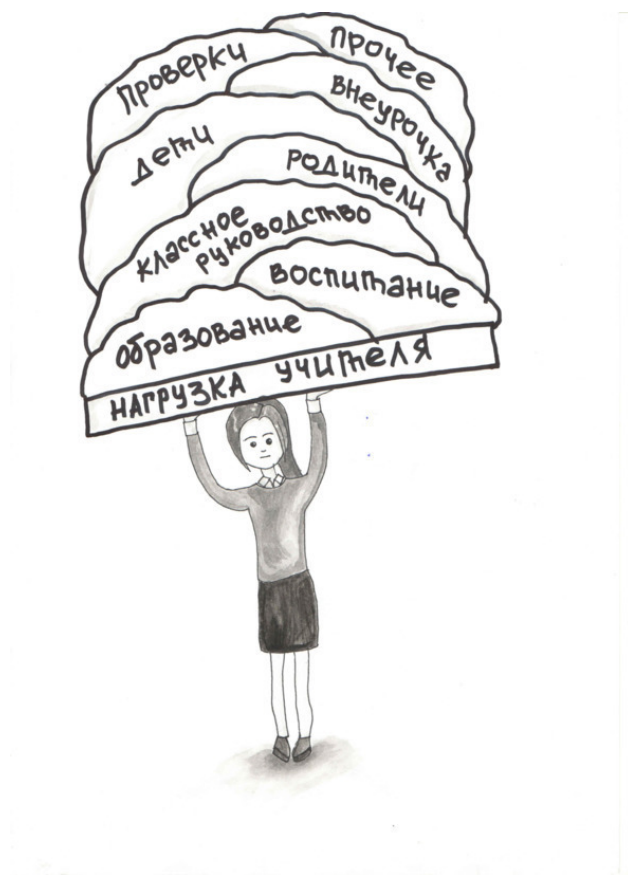 прочее
проверки
внеурочка
дети
родители
классное
руководство
воспитание
образование
НАГРУЗКА УЧИТЕЛЯ